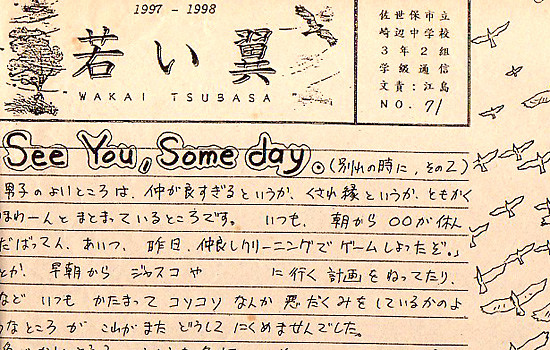 1997 - 1998
若い翼
"WAKAI TSUBASA"
佐世保市立
崎辺中学校
3年2組
学級通信
文責:江島
NO. 71
See You, Some day。(別れの時に、その2)
男子のよいところは、仲が良すぎるというか、くされ縁というか、ともかく
ほわーんとまとまっているところです。 いつも、朝から ○○が休ん
だばってん、あいつ、昨日、仲良しクリーニングでゲームしよったぞ。」
とか、早朝から ジャスコ や に行く計画をねってたり、
など いつも かたまって コソコソ なんか 悪だくみをしているかのよ
うなところ が これがまた どうして にくめませんでした。